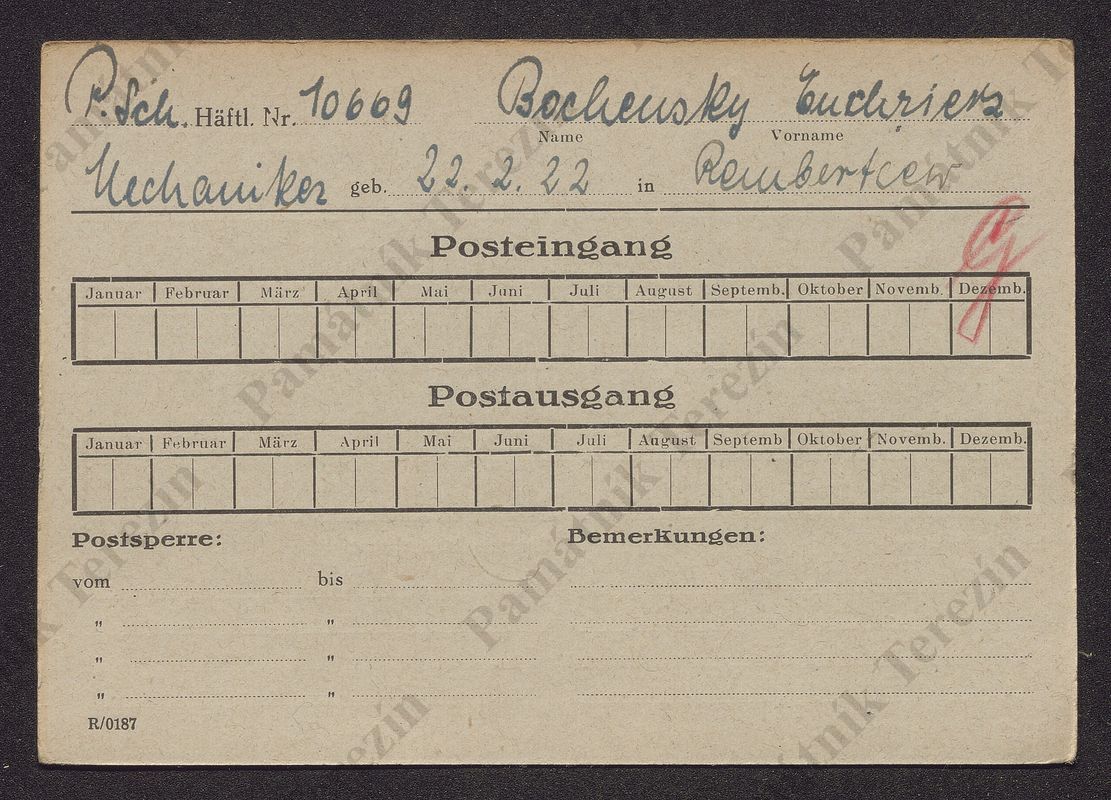 P. Sch. Häftl. Nr. 10669 Bochensky
Name Vorname
Mechaniker geb. 22. 2. 22 in Rembertcew
Posteingang
Januar Februar März April Mai Juni Juli August Septemb. Oktober Novemb. Dezemb.
Postausgang
Januar Februar März April Mai Juni Juli August Septemb Oktober Novemb. Dezemb.
Postsperre: Bemerkungen:
vom bis
„ "
„ "
„ "
R/0187
Památník Terezín